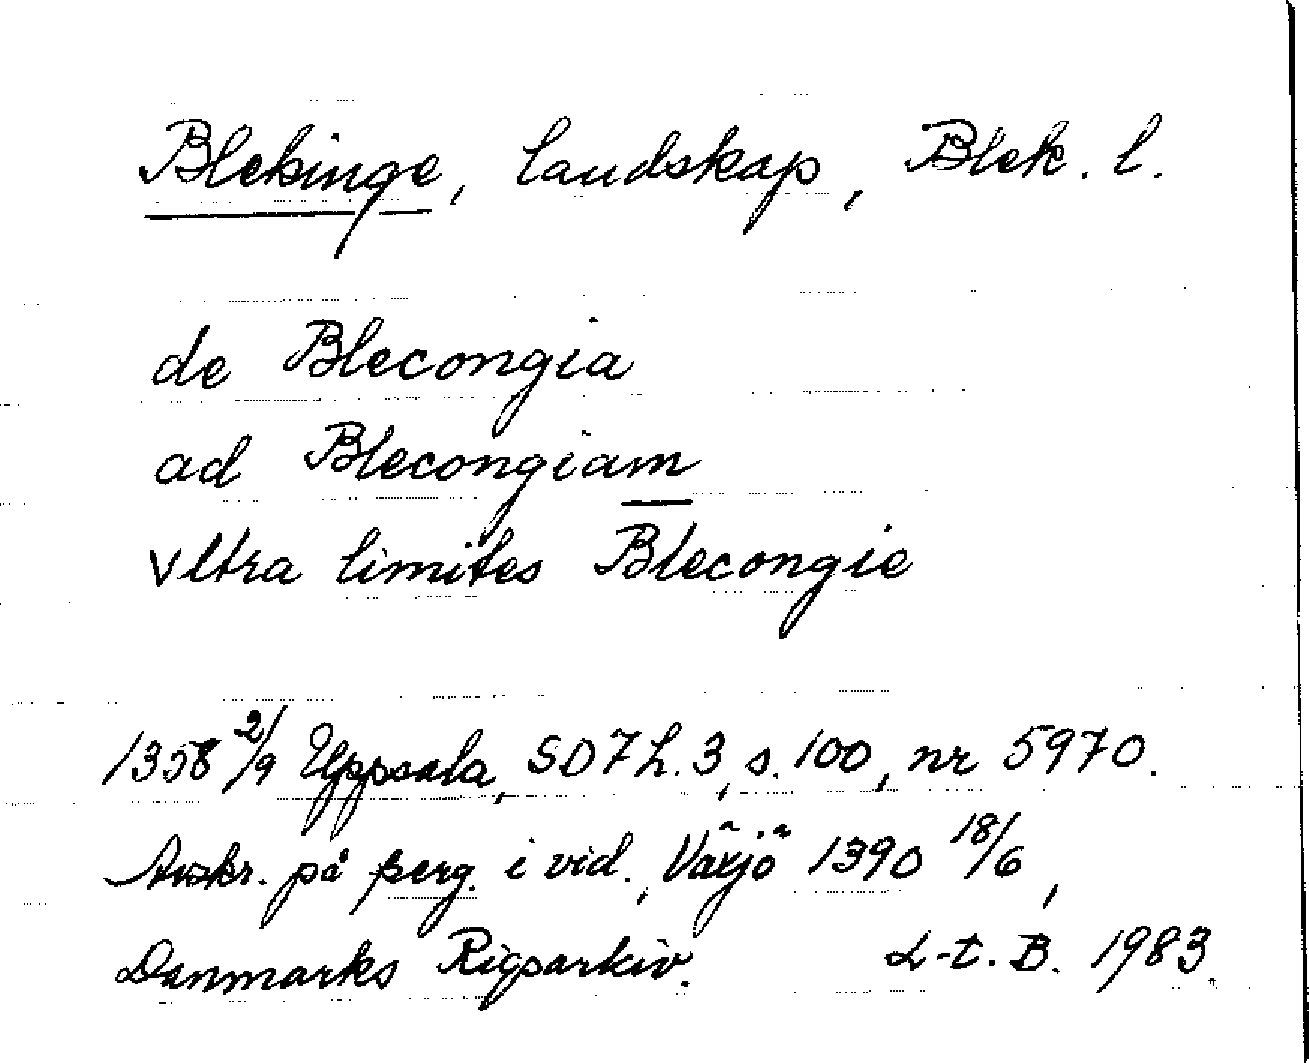 Blekinge, landskap, Blek. l.
de Blecongia
ad Blecongiam
vltra limites Blecongie
1358 2/9 Uppsala, SD 7 h. 3, s. 100, nr 5970.
Avskr. på perg. i vid., Växjö 1390 18/6,
Danmarks Rigsarkiv. L-t. B. 1983.